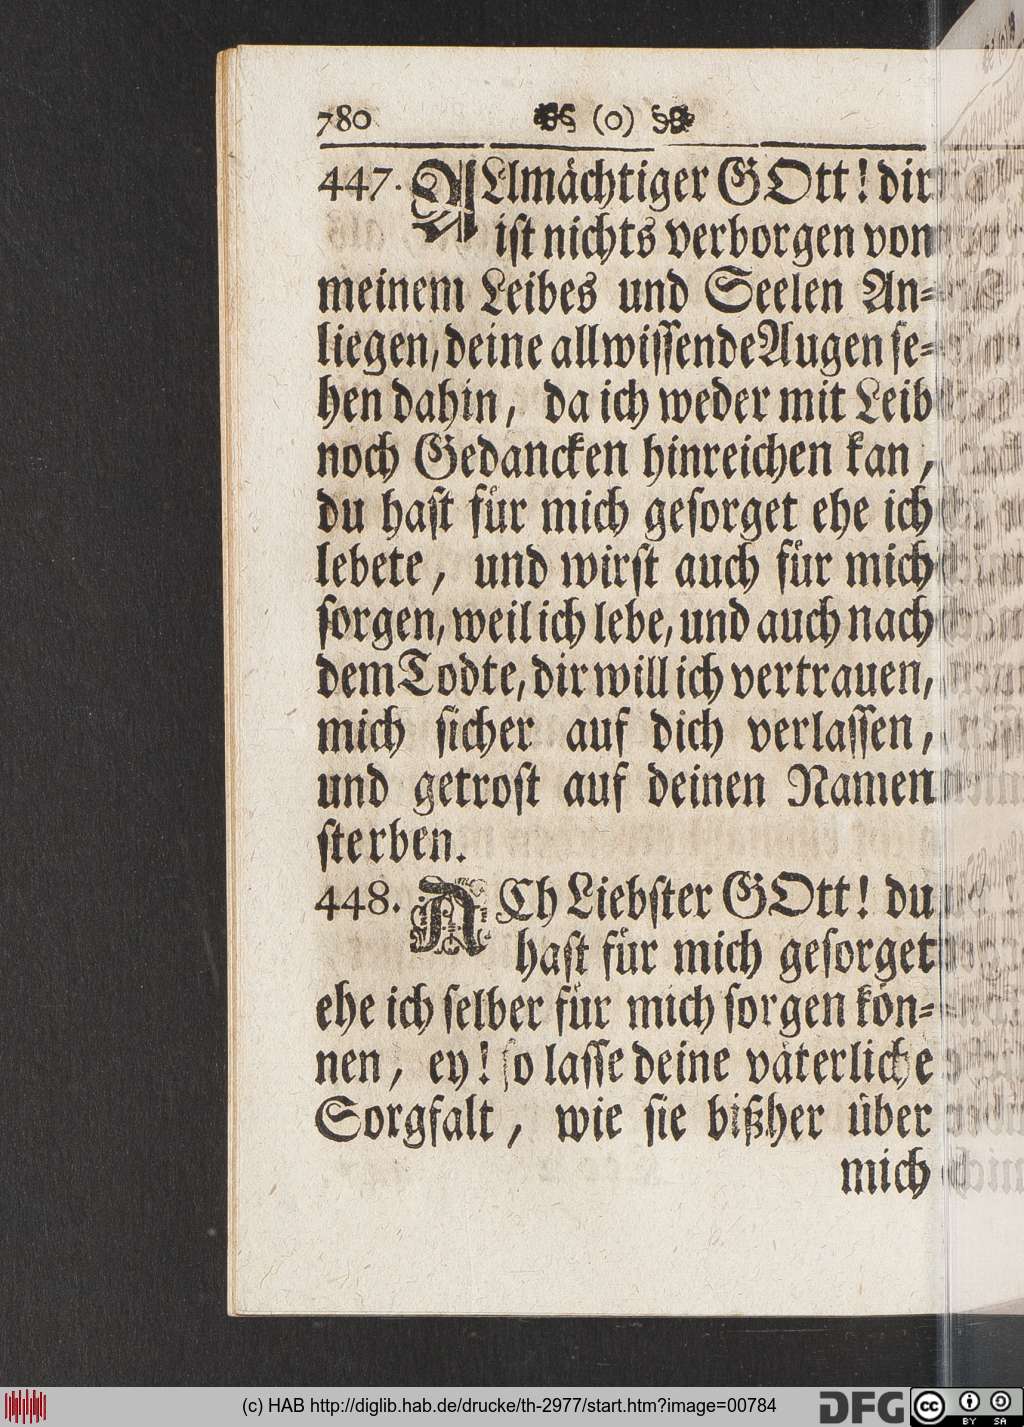 780 (o)
447. ALlmächtiger GOtt! dir
ist nichts verborgen von
meinem Leibes und Seelen An-
liegen, deine allwissende Augen se-
hen dahin, da ich weder mit Leib
noch Gedancken hinreichen kan,
du hast für mich gesorget ehe ich
lebete, und wirst auch für mich
sorgen, weil ich lebe, und auch nach
dem Todte, dir will ich vertrauen,
mich sicher auf dich verlassen,
und getrost auf deinen Namen
sterben.
448. ACh Liebster GOtt! du
hast für mich gesorget
ehe ich selber für mich sorgen kön-
nen, ey! so lasse deine väterliche
Sorgfalt, wie sie bißher über
mich
(c) HAB http://diglib.hab.de/drucke/th-2977/start.htm?image=00784
DFG
cc BY SA